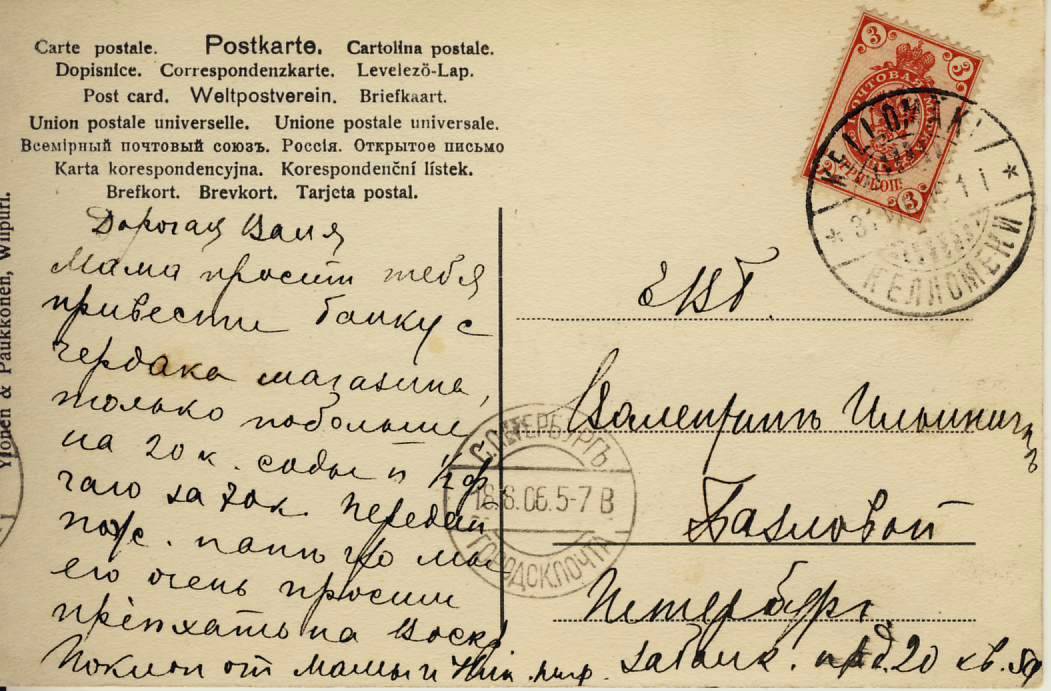 Carte postale. Postkarte. Cartolina postale.
Dopisnice. Correspondenzkarte. Levelező-Lap.
Post card. Weltpostverein. Briefkaart.
Union postale universelle. Unione postale universale.
Всемірный почтовый союзъ. Россія. Открытое письмо
Karta korespondencyjna. Korespondenční lístek.
Brefkort. Brevkort. Tarjeta postal.
Дорогая Валя
Мама просит тебя
привести банку с
чердака магазина,
только побольше
на 20 к. соды и 1/2 ф.
чаю за 70к. Передай
пож. папи что мы
его очень просим
пріѣхать на Воскр
Поклон от мамы и
ЕВБ.
Валентинъ Ильинична
Базловой
Петербург
20 кв.
3 3 3
ПОЧТОВАЯ МАРКА
KELLOMÄKI
КЕЛЛОМЕКИ
С.ПЕТЕРБУРГЪ
18.6.06.5-7 В
ГОРОДСК.ПОЧТА
&amp; Paukkonen, Wiipuri.